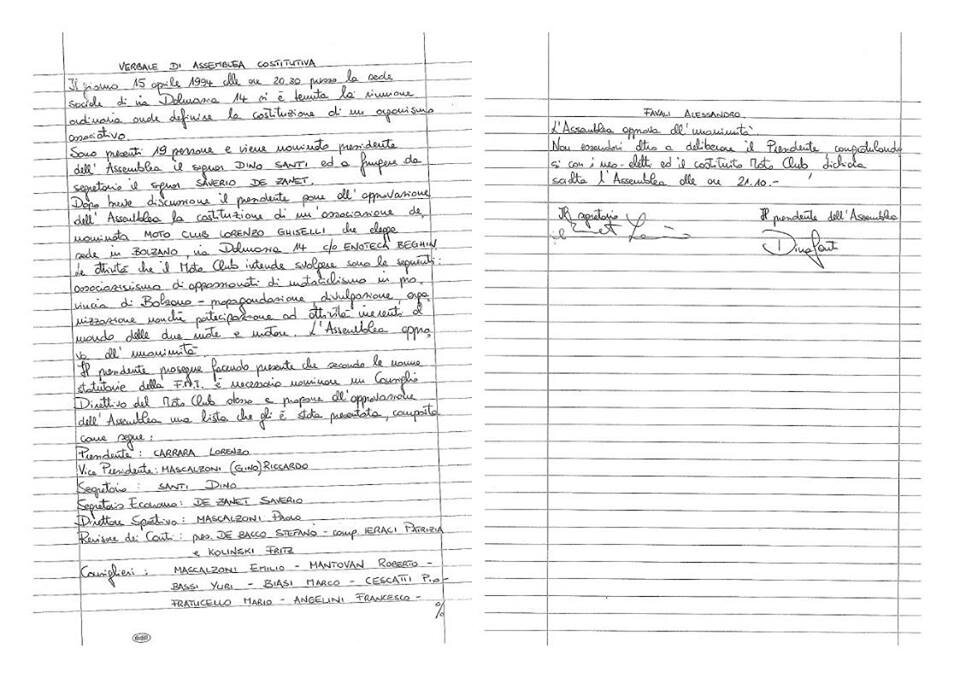 VERBALE DI ASSEMBLEA COSTITUTIVA
Il giorno 15 aprile 1994 alle ore 20.30 presso la sede
sociale di via Dalmazia 14 si è tenuta la riunione
ordinaria onde definire la costituzione di un organismo
associativo.
Sono presenti 19 persone e viene nominato presidente
dell'Assemblea il signor DINO SANTI ed a fungere da
segretario il signor SAVERIO DE ZANET.
Dopo breve discussione il presidente pone all'approvazione
dell'Assemblea la costituzione di un'associazione de,
nominata MOTO CLUB LORENZO GHISELLI che elegge
sede in BOLZANO, via Dalmazia 14 c/o ENOTECA BEGHIN
Le attività che il Moto Club intende svolgere sono le seguenti:
associazionismo di appassionati di motociclismo in pro,
vincia di Bolzano - propagandazione, divulgazione, orga,
nizzazione nonchè partecipazione ad attività inerenti al
mondo delle due ruote a motore. L'Assemblea appro,
va all'unanimità.
Il presidente prosegue facendo presente che secondo le norme
statutarie della F.M.I. è necessario nominare un Consiglio
Direttivo del Moto Club stesso e propone all'approvazione
dell'Assemblea una lista che gli è stata presentata, composta
come segue:
Presidente: CARRARA LORENZO
Vice Presidente: MASCALZONI (GINO) RICCARDO
Segretario: SANTI DINO
Segretario Economo: DE ZANET SAVERIO
Direttore Sportivo: MASCALZONI PAOLO
Revisore dei Conti: pres. DE BACCO STEFANO - comp. IERACI PATRIZIA
e KOLINSKI FRITZ
Consiglieri: MASCALZONI EMILIO - MANTOVAN ROBERTO -
BASSI YURI - BIASI MARCO - CESCATTI PIO -
FRATICELLO MARIO - ANGELINI FRANCESCO -
%
FAVALI ALESSANDRO.
L'Assemblea approva all'unanimità.
Non essendovi altro a deliberare il Presidente congratulando
si con i neo-eletti ed il costituito Moto Club, dichiara
sciolta l'Assemblea alle ore 21.10.-
Il segretario Il presidente dell'Assemblea
Dino Santi